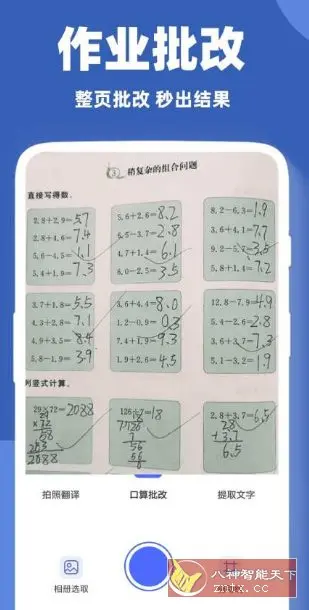 作业批改
整页批改 秒出结果
稍复杂的组合问题
直接写得数。
2.8+2.9=5.7
5.6+2.6=8.2
8.2-6.3=1.9
2.8+4.6=7.4
6.5-3.7=2.8
3.6+4.1=7.7
5.6-4.5=1.1
4.7+1.4=6.1
9.2-5.7=3.5
5.4+1.9=7.3
6.0-2.5=3.5
5.8+1.4=7.2
3.7+1.8=5.5
3.6+4.4=8.0
12.8-7.9=4.9
4.3+2.8=7.1
1.2-0.9=0.3
5.4-2.6=2.8
4.9+3.5=8.4
7.4+1.9=9.3
3.6+3.7=7.3
5.8-1.9=3.9
1.9+2.6=4.5
5.1-3.2=1.9
列竖式计算。
29×72=2088
126÷7=18
2.8+3.7=6.5
29
×72
58
203
2088
18
56
56
0
28
+3.7
6.5
拍照翻译
口算批改
提取文字
相册选取
八神智能天下
zntx.cc